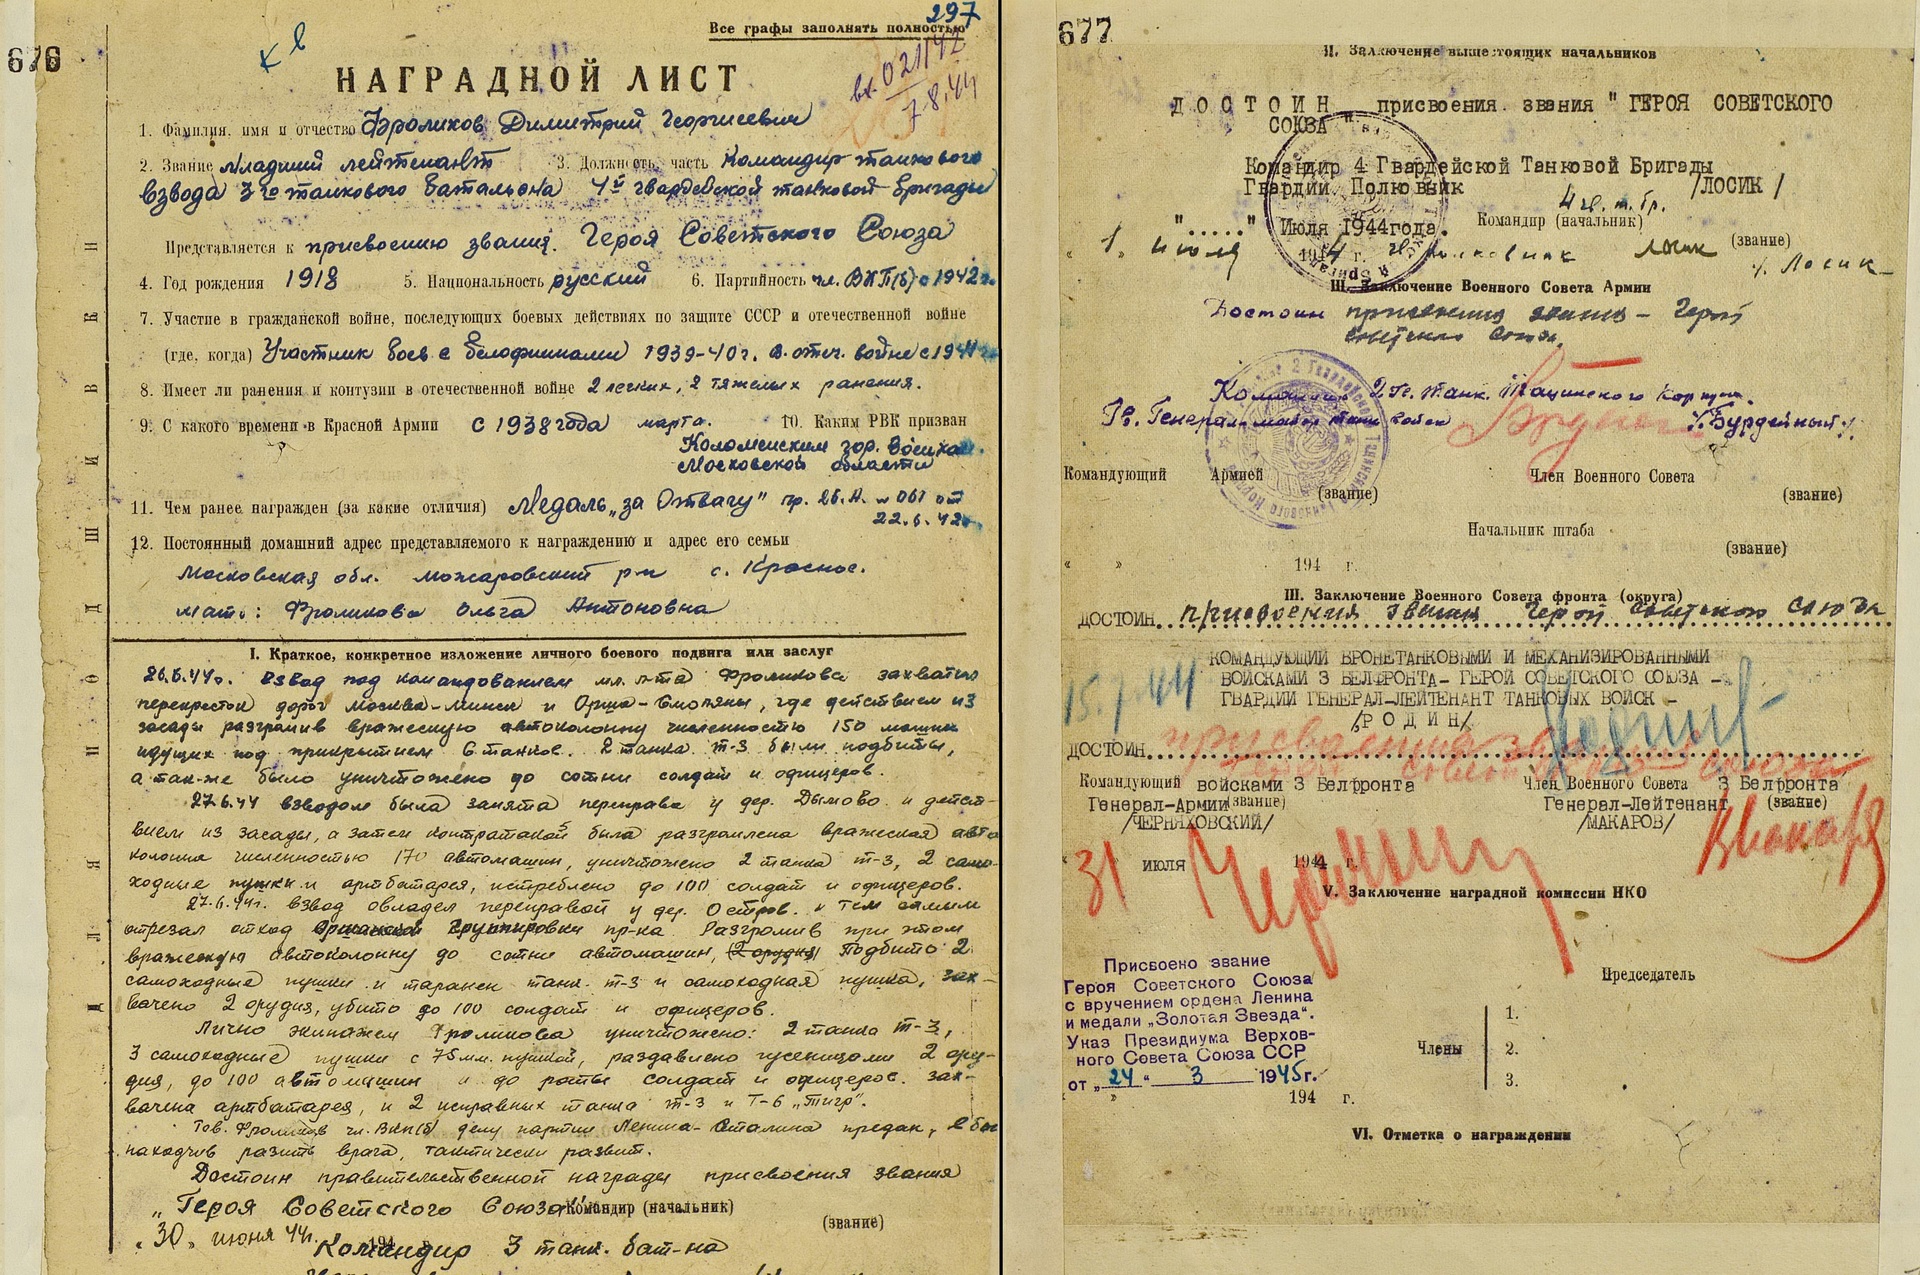 676
297
Все графы заполнять полностью
К в
вх. 021142
7.8.44
НАГРАДНОЙ ЛИСТ
1. Фамилия, имя и отчество Фроликов Димитрий Георгиевич
2. Звание Младший лейтенант 3. Должность, часть Командир танкового
взвода 3го танкового батальона 4й гвардейской танковой бригады
Представляется к присвоению звания. Героя Советского Союза
4. Год рождения 1918 5. Национальность русский 6. Партийность чл. ВКП(б) с 1942 г.
7. Участие в гражданской войне, последующих боевых действиях по защите СССР и отечественной войне
(где, когда) Участник боев с белофиннами 1939-40 г. В отеч. войне с 1941 г.
8. Имеет ли ранения и контузии в отечественной войне 2 легких, 2 тяжелых ранения.
9. С какого времени в Красной Армии с 1938 года марта. 10. Каким РВК призван
Коломенским гор. Военком.
Московской области
11. Чем ранее награжден (за какие отличия) Медаль „за Отвагу" пр. 26.А. № 061 от
22.6.42
12. Постоянный домашний адрес представляемого к награждению и адрес его семьи
Московская обл. Можаровский р-н с. Красное.
мать: Фроликова Ольга Антоновна
ДЛЯ ПОДШИВКИ
I. Краткое, конкретное изложение личного боевого подвига или заслуг
26.6.44г. взвод под командованием мл. л-та Фроликова захватил
перекресток дорог Москва-Минск и Орша-Смоляны, где действием из
засады разгромив вражескую автоколонну численностью 150 машин
идущих под прикрытием 6 танков. 2 танка Т-3 были подбиты,
а так-же было уничтожено до сотни солдат и офицеров.
27.6.44 взводом была занята переправа у дер. Дымово и дейст-
вием из засады, а затем контратакой была разгромлена вражеская авто
колонна численностью 170 автомашин, уничтожено 2 танка Т-3, 2 само-
ходные пушки и артбатарея, истреблено до 100 солдат и офицеров.
27.6.44г. взвод овладел переправой у дер. Остров. и тем самым
отрезал отход Оршанской группировки пр-ка. Разгромив при этом
вражескую автоколонну до сотни автомашин, (2 орудия) Подбито 2
самоходные пушки и таранен танк Т-3 и самоходная пушка, зах-
вачено 2 орудия, убито до 100 солдат и офицеров.
Лично экипажем Фроликова уничтожено: 2 танка Т-3,
3 самоходные пушки с 75 мм. пушкой, раздавлено гусеницами 2 ору-
дия, до 100 автомашин и до роты солдат и офицеров. Зах-
вачена артбатарея, и 2 исправных танка Т-3 и Т-6 „Тигр".
Тов. Фроликов чл. ВКП(б) делу партии Ленина-Сталина предан, в бою
находчив разить врага, тактически развит.
Достоин правительственной награды присвоения звания
„Героя Советского Союза" Командир (начальник)
(звание)
„30" июня 44г. 194
Командир 3 танк. бат-на
677
II. Заключение вышестоящих начальников
ДОСТОИН присвоения звания "ГЕРОЯ СОВЕТСКОГО
СОЮЗА"
Командир 4 Гвардейской Танковой Бригады
Гвардии Полковник /ЛОСИК/
4 гв. т. бр.
"....." Июля 1944года. Командир (начальник)
„ 1 " июля 1944 г. гв. полковник Лосик (звание)
/. Лосик
III. Заключение Военного Совета Армии
Достоин присвоения звания – Герой
Советского Союза.
Командир 2 Гв. Танк. Тацинского корпуса.
Гв. Генерал-майор танк. войск /. Бурдейный /.
Командующий Армией Член Военного Совета
(звание) (звание)
Начальник штаба
(звание)
„ " 194 г.
III. Заключение Военного Совета фронта (округа)
ДОСТОИН..присвоения звания Герой Советского Союза
15.7.44
КОМАНДУЮЩИЙ БРОНЕТАНКОВЫМИ И МЕХАНИЗИРОВАННЫМИ
ВОЙСКАМИ 3 БЕЛФРОНТА- ГЕРОЙ СОВЕТСКОГО СОЮЗА -
ГВАРДИИ ГЕНЕРАЛ-ЛЕЙТЕНАНТ ТАНКОВЫХ ВОЙСК -
/РОДИН/
ДОСТОИН..присвоения звания
Герой Советского Союза
Командующий войсками 3 Белфронта Член Военного Совета 3 Белфронта
Генерал-Армии (звание) Генерал-Лейтенант (звание)
/ЧЕРНЯХОВСКИЙ/ /МАКАРОВ/
31 июля 1944 г.
V. Заключение наградной комиссии НКО
Председатель
Присвоено звание
Героя Советского Союза
с вручением ордена Ленина
и медали „Золотая Звезда".
Указ Президиума Верхов-
ного Совета Союза ССР
от „24" 3 1945г.
Члены
1.
2.
3.
„ " 194 г.
VI. Отметка о награждении